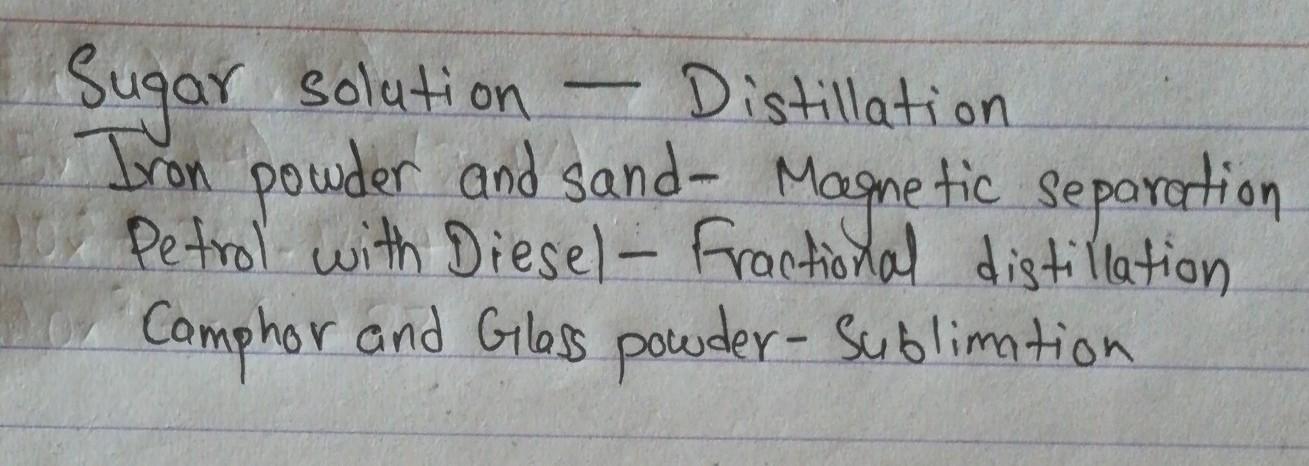 Sugar solution — Distillation
Iron powder and sand- Magnetic separation
Petrol with Diesel - Fractional distillation
Camphor and Glass powder- Sublimation